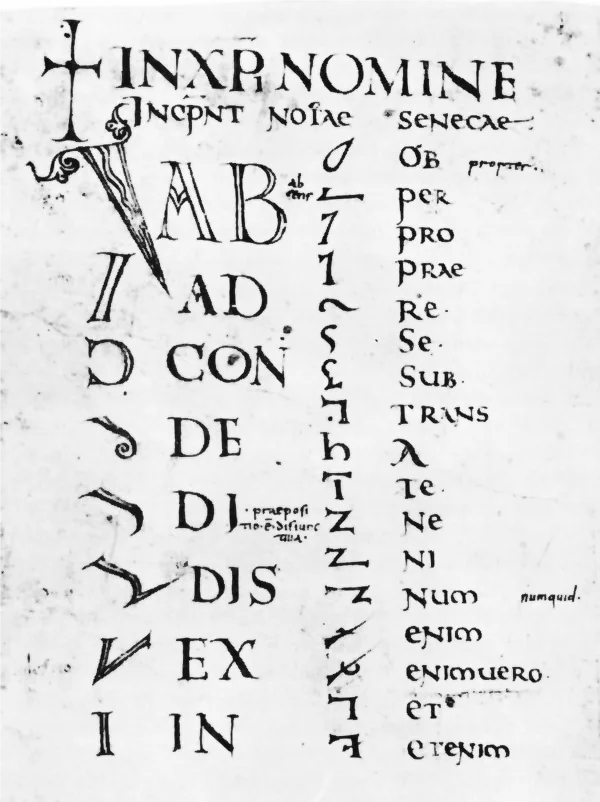 INXPI NOMINE
INCPNT NOTAE SENECAE
AB
AD
CON
DE
DI · praeposi
tio·ē·disiunc
tiua·
DIS
EX
IN
OB propter
PER
PRO
PRAE
RE·
SE·
SUB·
TRANS
A
TE·
NE
NI
NUM numquid·
ENIM
ENIMUERO
ET
ETENIM